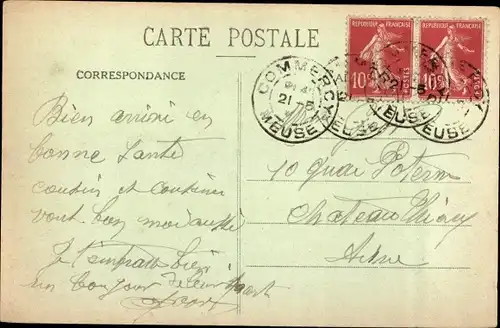 CARTE POSTALE
CORRESPONDANCE
REPUBLIQUE FRANÇAISE
REPUBLIQUE FRANÇAISE
10c
10c
COMMERCY
21-5
MEUSE
MEUSE
MEUSE
Bien arrivé en
bonne santé
cousin et cousine
vont bien moi aussi
Je t'embrasse bien
un bonjour
10 quai
Chateau Thierry
Aisne